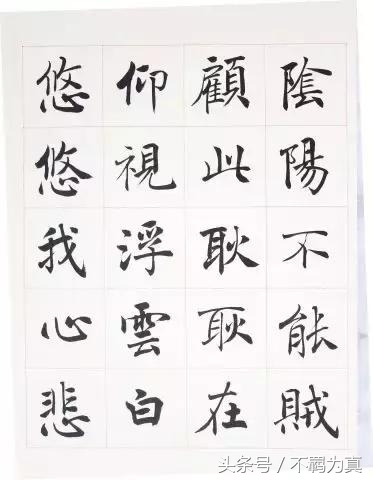 陰陽不能賊
顧此耿耿在
仰視浮雲白
悠悠我心悲
头条号 / 不羁为真